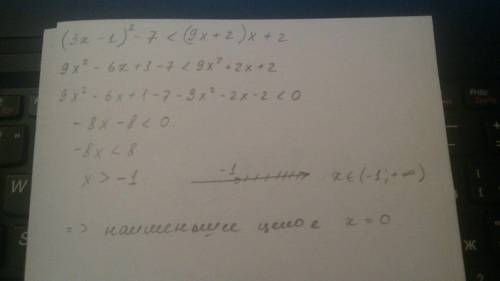 (3x - 1)² - 7 < (9x + 2)x + 2
9x² - 6x + 1 - 7 < 9x² + 2x + 2
9x² - 6x + 1 - 7 - 9x² - 2x - 2 < 0
- 8x - 8 < 0
-8x < 8
x > -1 -1 x ∈ (-1; +∞)
=> наименьшее целое x = 0